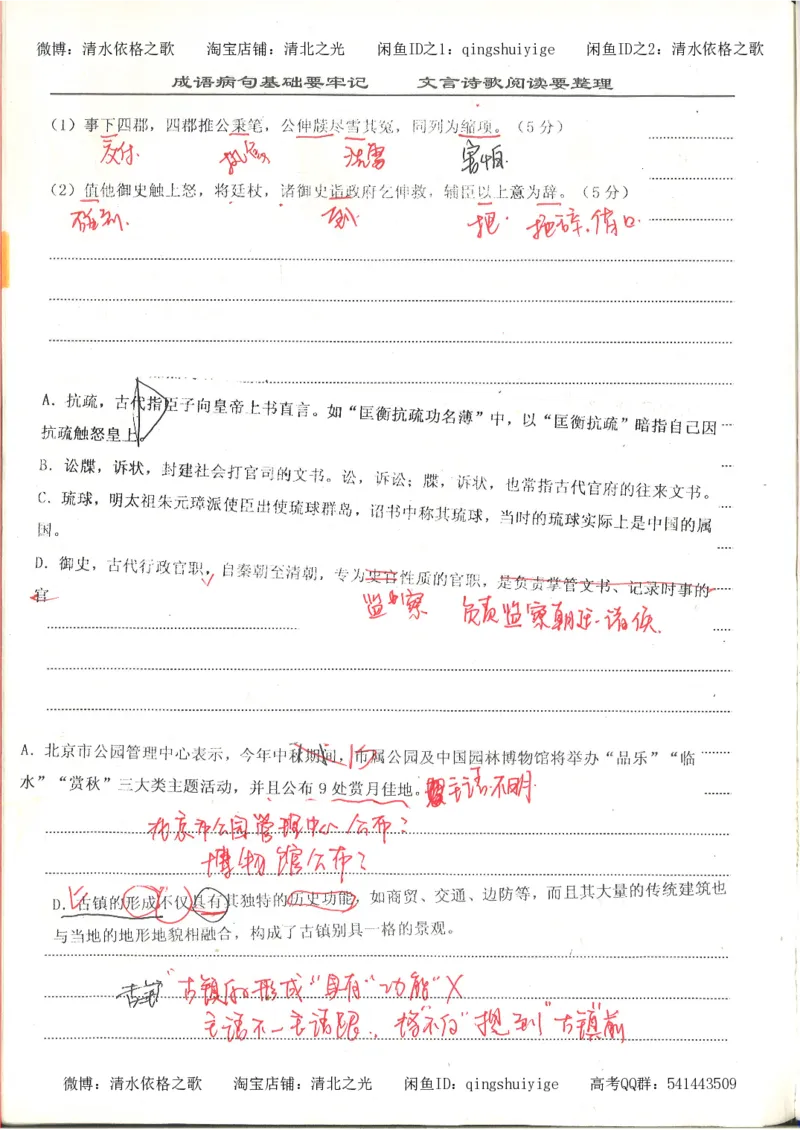 微博：清水依格之歌 淘宝店铺：清北之光 闲鱼ID之1：qingshuiyige 闲鱼ID之2：清水依格之歌
成语病句基础要牢记 文言诗歌阅读要整理
（1）事下四郡，四郡推公秉笔，公伸牍尽雪其冤，同列为缩项。（5分）
交付. 执笔 洗雪 害怕.
（2）值他御史触上怒，将廷杖，诸御史诣政府乞伸救，辅臣以上意为辞。（5分）
碰到. 到. 把. 推辞.借口
A．抗疏，古代指臣子向皇帝上书直言。如“匡衡抗疏功名薄”中，以“匡衡抗疏”暗指自己因
抗疏触怒皇上。
B．讼牒，诉状，封建社会打官司的文书。讼，诉讼；牒，诉状，也常指古代官府的往来文书。
C．琉球，明太祖朱元璋派使臣出使琉球群岛，诏书中称其琉球，当时的琉球实际上是中国的属
国。
D．御史，古代行政官职，自秦朝至清朝，专为史官性质的官职，是负责掌管文书、记录时事的
官
监察 负责监察朝廷、诸侯.
A．北京市公园管理中心表示，今年中秋期间，市属公园及中国园林博物馆将举办“品乐”“临
水”“赏秋”三大类主题活动，并且公布9处赏月佳地。主语不明
北京市公园管理中心公布？
博物馆公布？
D．古镇的形成不仅具有其独特的历史功能，如商贸、交通、边防等，而且其大量的传统建筑也
与当地的地形地貌相融合，构成了古镇别具一格的景观。
古镇 “古镇的形成”具有“功能”X
主语不一主语跟，将“不仅”提到“古镇”前
微博：清水依格之歌 淘宝店铺：清北之光 闲鱼ID：qingshuiyige 高考QQ群：541443509